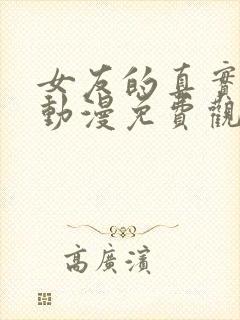 女友的真實
動漫免費觀
高廣濱